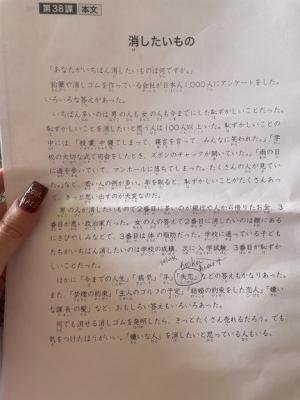 第38課 本文
消したいもの
「あなたがいちばん消したいものは何ですか。」
鉛筆や消しゴムを作っている会社が日本人1,000人にアンケートをした。
いろいろな答えがあった。
いちばん多いのは男の人も女の人も今までにした恥ずかしいことだった。
恥ずかしいことを消したいと思う人は100人以上いた。恥ずかしいことの
中には、「授業中寝てしまって、寝言を言って、みんなに笑われた。」「学
校の大切な式で司会をしたとき、ズボンのチャックが開いていた。」「雨の日
に道を歩いていて、マンホールに落ちてしまった。たくさんの人が見てい
た。」など、若い人の例が多い。年を取ると、恥ずかしいことがたくさんあっ
て、きっと思い出すのが大変なのだ。
男の人が消したいもので2番目に多いのが銀行や人から借りたお金、3
番目が悪い政治家だった。女の人の答えで2番目に消したいのは顔にある
にきびやしみなどで、3番目は体の脂肪だった。学校に通っている子ども
たちがいちばん消したいのは学校の成績、次に入学試験、3番目が恥ずか
しいことだった。
ほかに「今までの人生」「病気」「年」「失恋」などの答えもかなりあった。
broken heart
また、「禁煙の約束」「主人のゴルフの予定」「結婚の約束をした恋人」「嫌い
な課長の髪」など、おもしろい答えもいろいろあった。
何でも消せる消しゴムを発明したら、きっとたくさん売れるだろう。でも、
気をつけたほうがいい。「嫌いな人」を消したいと思っている人もいる。